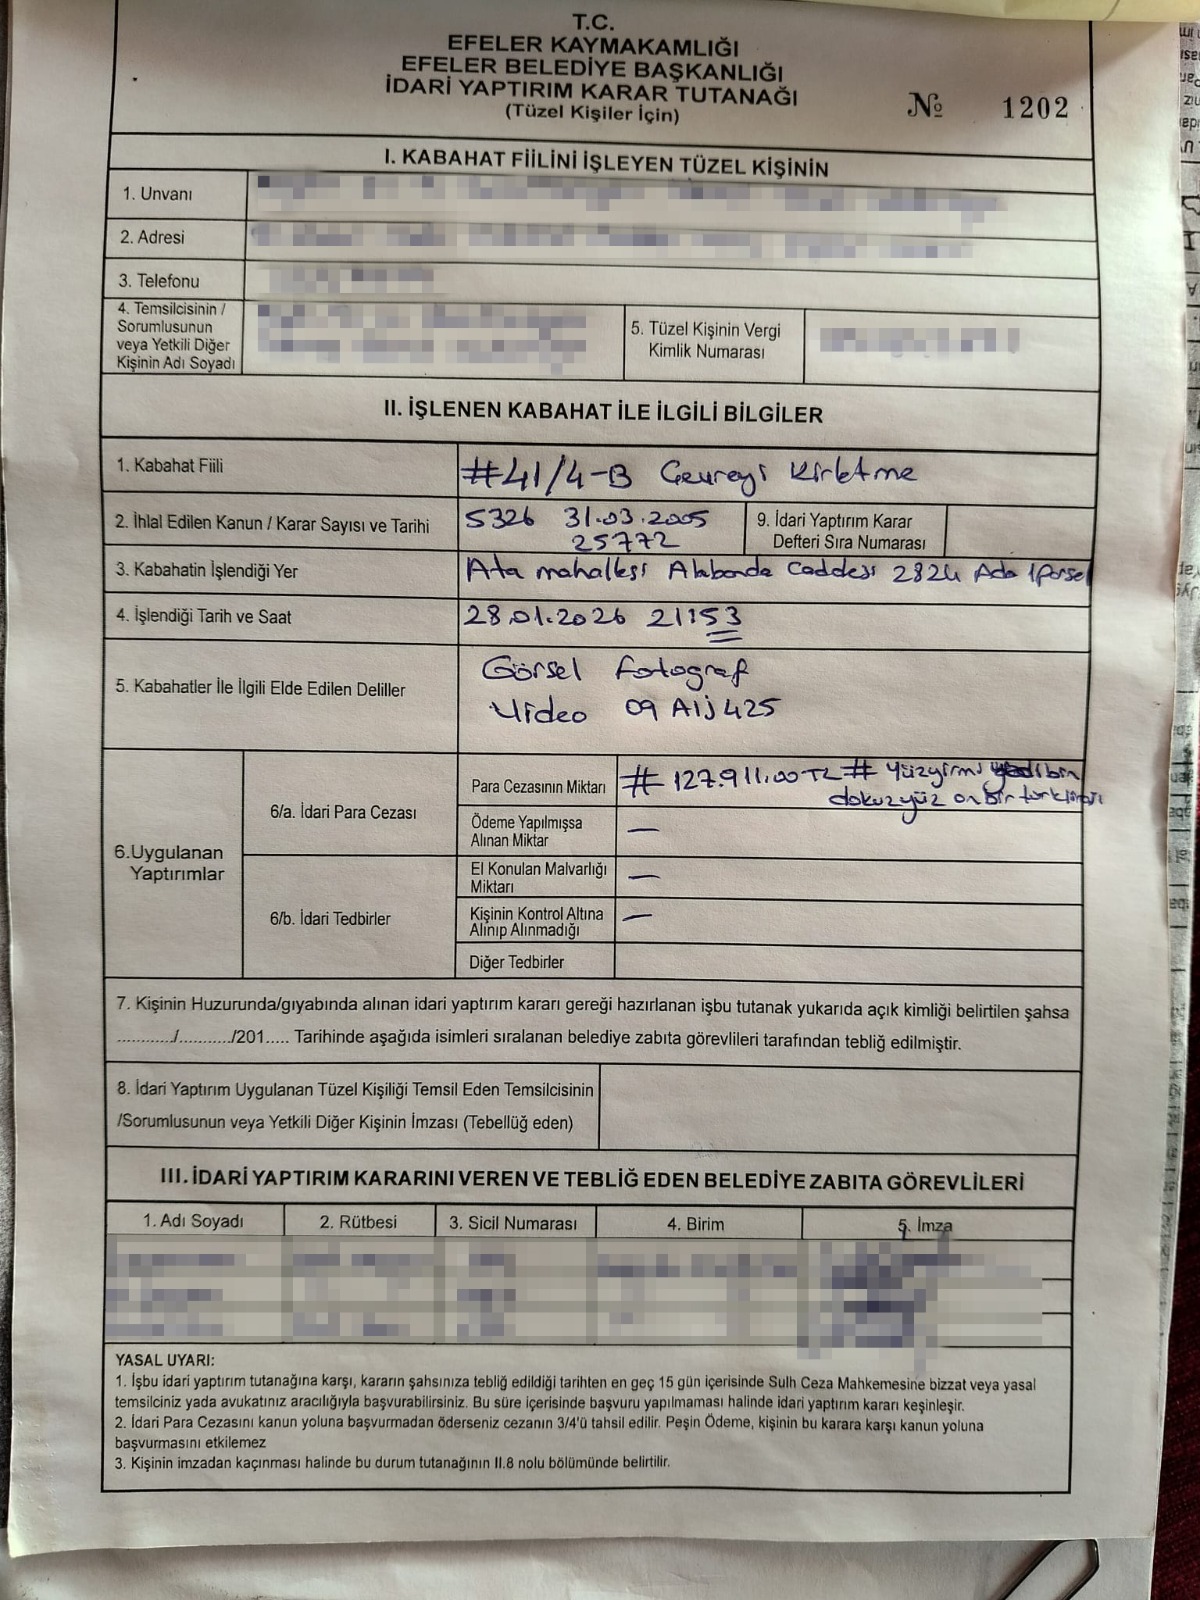 T.C.
EFELER KAYMAKAMLIĞI
EFELER BELEDİYE BAŞKANLIĞI
İDARİ YAPTIRIM KARAR TUTANAĞI
(Tüzel Kişiler İçin)
№ 1202
I. KABAHAT FİİLİNİ İŞLEYEN TÜZEL KİŞİNİN
1. Unvanı
2. Adresi
3. Telefonu
4. Temsilcisinin /
Sorumlusunun
veya Yetkili Diğer
Kişinin Adı Soyadı
5. Tüzel Kişinin Vergi
Kimlik Numarası
II. İŞLENEN KABAHAT İLE İLGİLİ BİLGİLER
1. Kabahat Fiili
#41/4-B Çevreyi Kirletme
2. İhlal Edilen Kanun / Karar Sayısı ve Tarihi
5326 31.03.2005
25772
9. İdari Yaptırım Karar
Defteri Sıra Numarası
3. Kabahatin İşlendiği Yer
Ata mahallesi Alabanda Caddesi 2824 Ada 1 Parsel
4. İşlendiği Tarih ve Saat
28.01.2026 21:53
5. Kabahatler İle İlgili Elde Edilen Deliller
Görsel Fotograf
Video 09 AIJ 425
6.Uygulanan
Yaptırımlar
6/a. İdari Para Cezası
Para Cezasının Miktarı
# 127.911.00 TL # Yüzyirmi yedibin
dokuzyüz on bir türk lirası
Ödeme Yapılmışsa
Alınan Miktar
—
6/b. İdari Tedbirler
El Konulan Malvarlığı
Miktarı
—
Kişinin Kontrol Altına
Alınıp Alınmadığı
—
Diğer Tedbirler
7. Kişinin Huzurunda/gıyabında alınan idari yaptırım kararı gereği hazırlanan işbu tutanak yukarıda açık kimliği belirtilen şahsa
.........../.........../201..... Tarihinde aşağıda isimleri sıralanan belediye zabıta görevlileri tarafından tebliğ edilmiştir.
8. İdari Yaptırım Uygulanan Tüzel Kişiliği Temsil Eden Temsilcisinin
/Sorumlusunun veya Yetkili Diğer Kişinin İmzası (Tebellüğ eden)
III. İDARİ YAPTIRIM KARARINI VEREN VE TEBLİĞ EDEN BELEDİYE ZABITA GÖREVLİLERİ
1. Adı Soyadı 2. Rütbesi 3. Sicil Numarası 4. Birim 5. İmza
YASAL UYARI:
1. İşbu idari yaptırım tutanağına karşı, kararın şahsınıza tebliğ edildiği tarihten en geç 15 gün içerisinde Sulh Ceza Mahkemesine bizzat veya yasal
temsilciniz yada avukatınız aracılığıyla başvurabilirsiniz. Bu süre içerisinde başvuru yapılmaması halinde idari yaptırım kararı keşinleşir.
2. İdari Para Cezasını kanun yoluna başvurmadan öderseniz cezanın 3/4'ü tahsil edilir. Peşin Ödeme, kişinin bu karara karşı kanun yoluna
başvurmasını etkilemez
3. Kişinin imzadan kaçınması halinde bu durum tutanağının II.8 nolu bölümünde belirtilir.